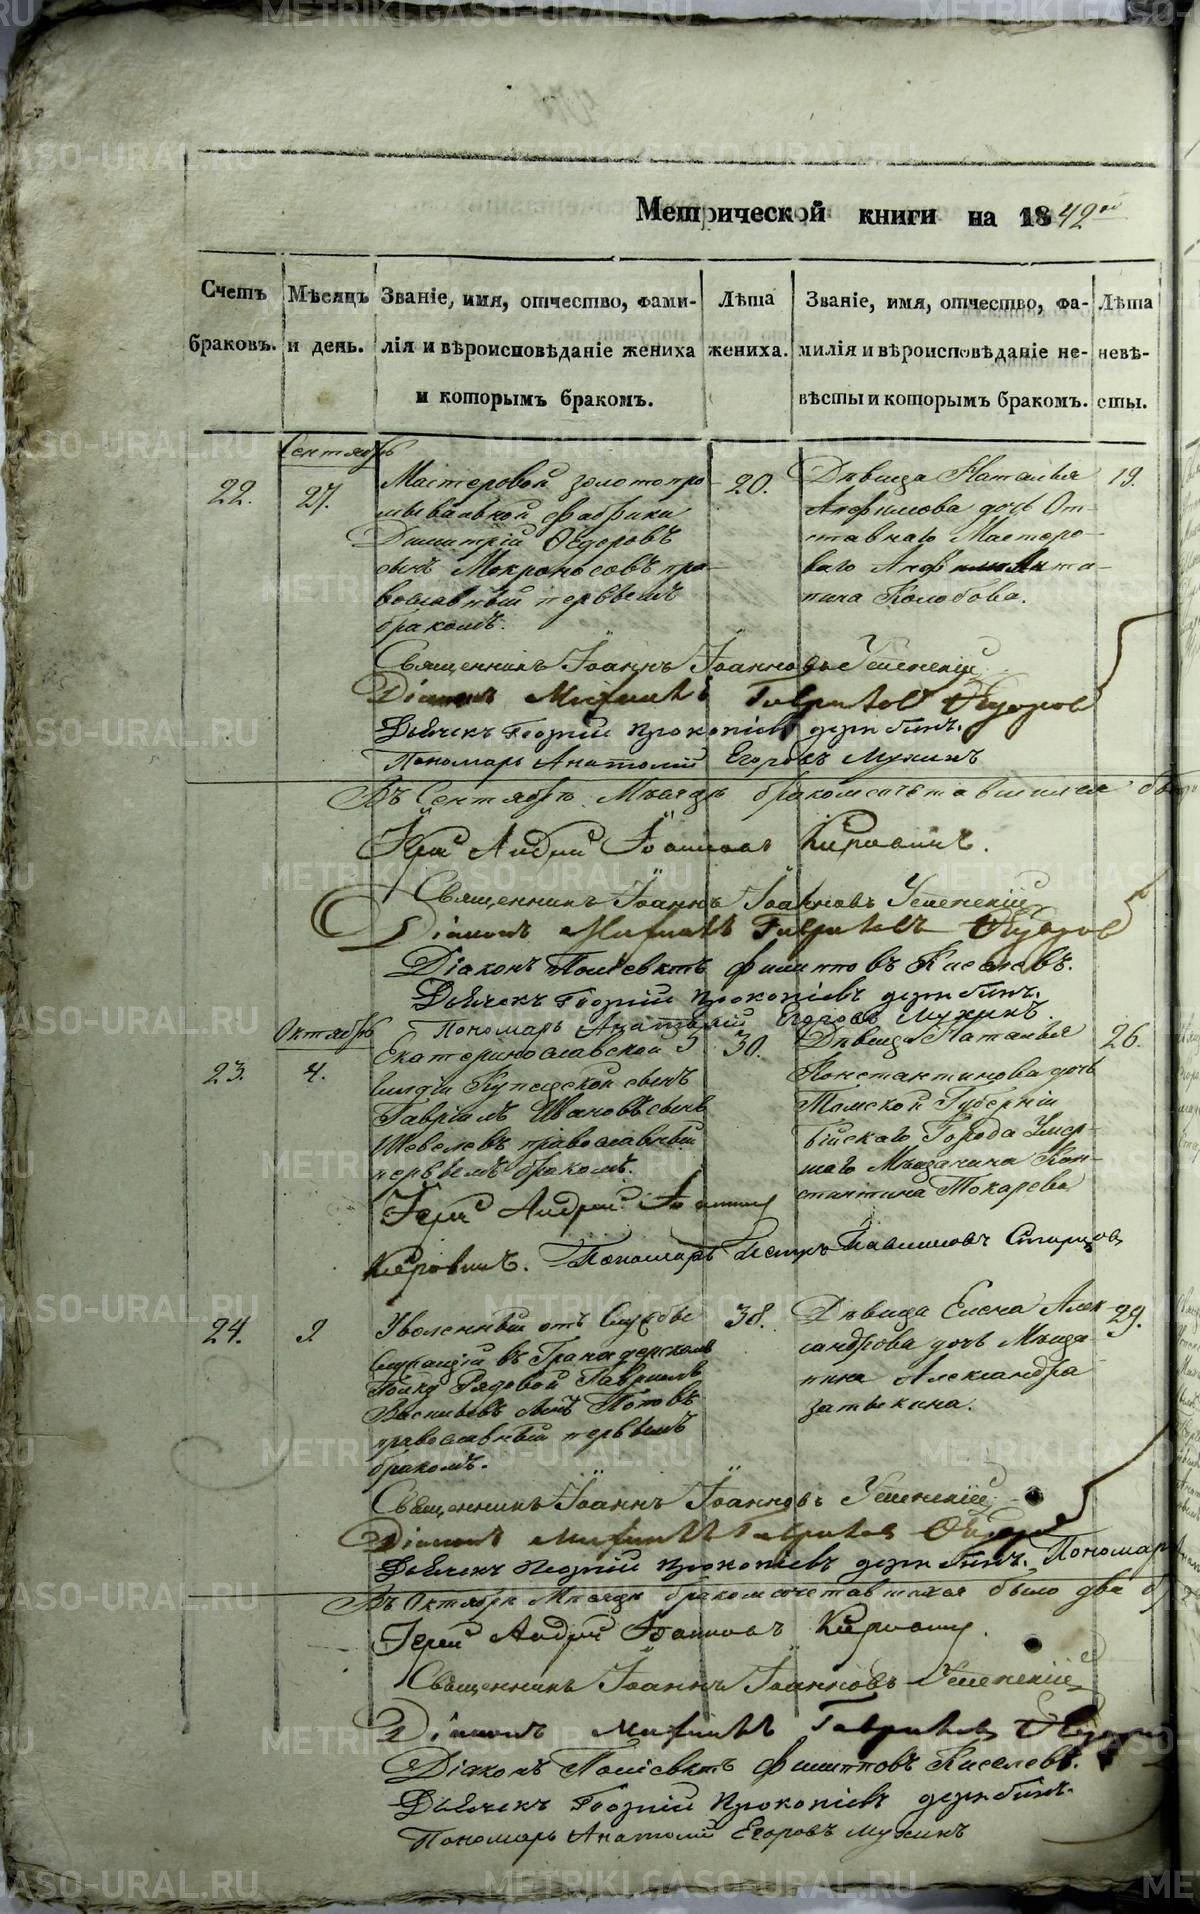 Метрической книги на 1842ой
Счетъ браковъ.
Мѣсяцъ и день.
Званіе, имя, отчество, фами-
лія и вѣроисповѣданіе жениха
и которымъ бракомъ.
Лѣта
жениха.
Званіе, имя, отчество, фа-
милія и вѣроисповѣданіе не-
вѣсты и которымъ бракомъ.
Лѣта
невѣ-
сты.
Сентябрь
22.
27.
Мастеровой золотопро
мывальной фабрики
Димитрій Ѳедоровъ
сынъ Мокроносовъ пра-
вославный первымъ
бракомъ.
20.
Дѣвица Наталья
Анфимова дочь От-
ставнаго Мастеро-
ваго Анф
пина Колобова.
19.
Священникъ Іоаннъ Іоанновъ Успенскій
Діаконъ Михаилъ Гавриловъ Ѳедоров
Дьячекъ Георгій Прокопіевъ дерябинъ.
Пономарь Анатолій Егоровъ Мухинъ
Въ Сентябрѣ Мѣсяцѣ бракомсочетавшихся
Іерей Андрей Іоанновъ Кирпищ.
Священникъ Іоаннъ Іоанновъ Успенскій
Діаконъ Михаилъ Гавриловъ Ѳедоров
Діаконъ Поліевктъ филипповъ Киселевъ.
Дьячекъ Георгій Прокопіевъ дерябинъ.
Пономарь Анатолій Егоровъ Мухинъ.
Октябрь
23.
4.
Екатеринославской 3
гилдіи Купецской сынъ
Гавріилъ Ивановъ сынъ
Шевелевъ православный
первымъ бракомъ.
30.
Дѣвица Наталья
Константинова дочь
Томской Губерніи
Бійскаго Города Умер-
шаго Мѣщанина Кон-
стантина Токарева
26.
Іерей Андрей Іоаннов
Пономарь Петръ Павлиновъ
24.
9.
Уволенный отъ Службы
Служащій въ Гранадерскомъ
Полку Рядовой Гавріилъ
Васильевъ сынъ Поповъ
православный первымъ
бракомъ.
38.
Дѣвица Елена Алек-
сандрова дочь Мѣща-
нина Александра
Затыкина.
29.
Священникъ Іоаннъ Іоанновъ Успенскій
Діаконъ Михаилъ Гавриловъ Ѳедоров
Дьячекъ Георгій Прокопіевъ дерябинъ. Пономарь
Въ Октябрѣ Мѣсяцѣ бракомсочетавшихся было два
Іерей Андрей Іоанновъ
Священникъ Іоаннъ Іоанновъ Успенскій
Діаконъ Михаилъ Гавриловъ Ѳедоров
Діаконъ Поліевктъ филипповъ Киселевъ.
Дьячекъ Георгій Прокопіевъ дерябинъ.
Пономарь Анатолій Егоровъ Мухинъ
METRIKI.GASO-URAL.RU